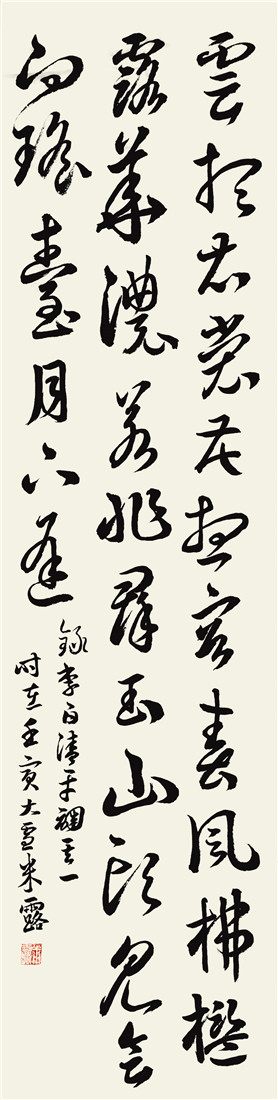 雲想衣裳花想容春風拂檻
露華濃若非群玉山頭見會
向瑤臺月下逢
錄李白清平調其一
時在壬寅大雪米露